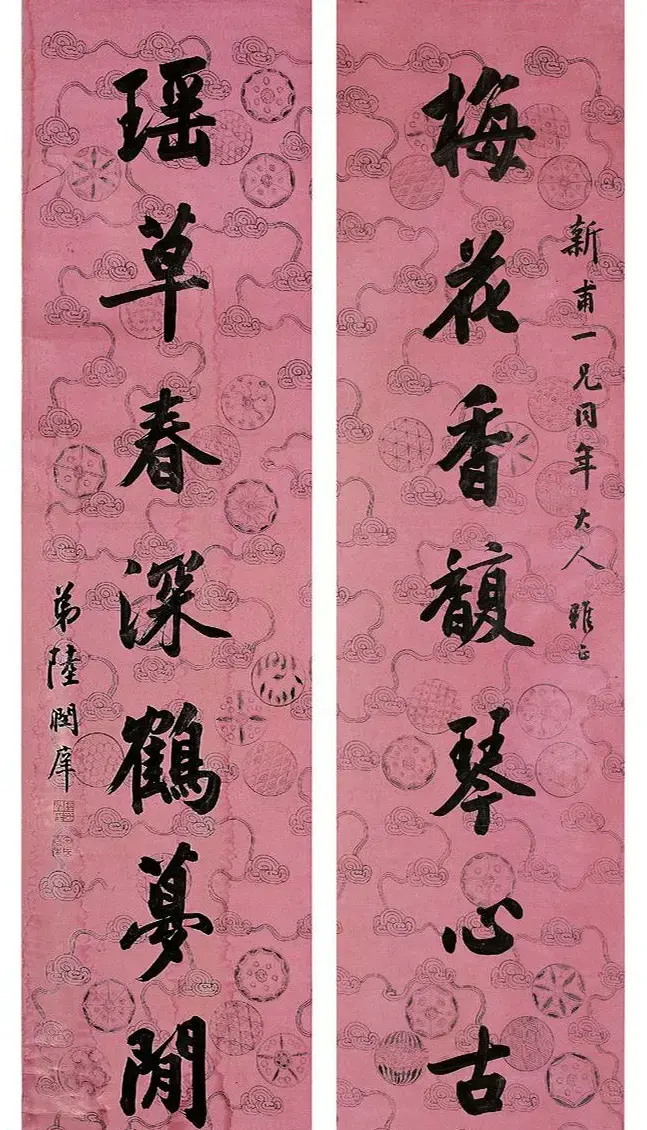 新甫一兄同年大人 雅正
梅花香馥琴心古
瑶草春深鶴夢閒
弟陸潤庠